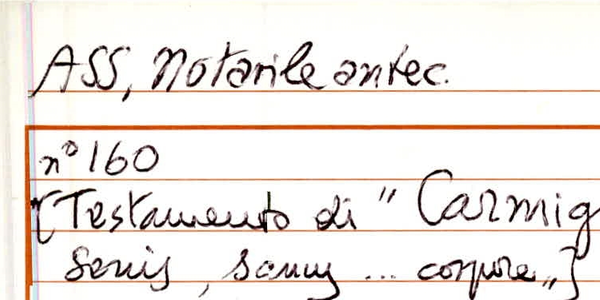 ASS, Notarile antec.
n° 160
[Testamento di "Carmig
Senis, sanus ... corpore"]